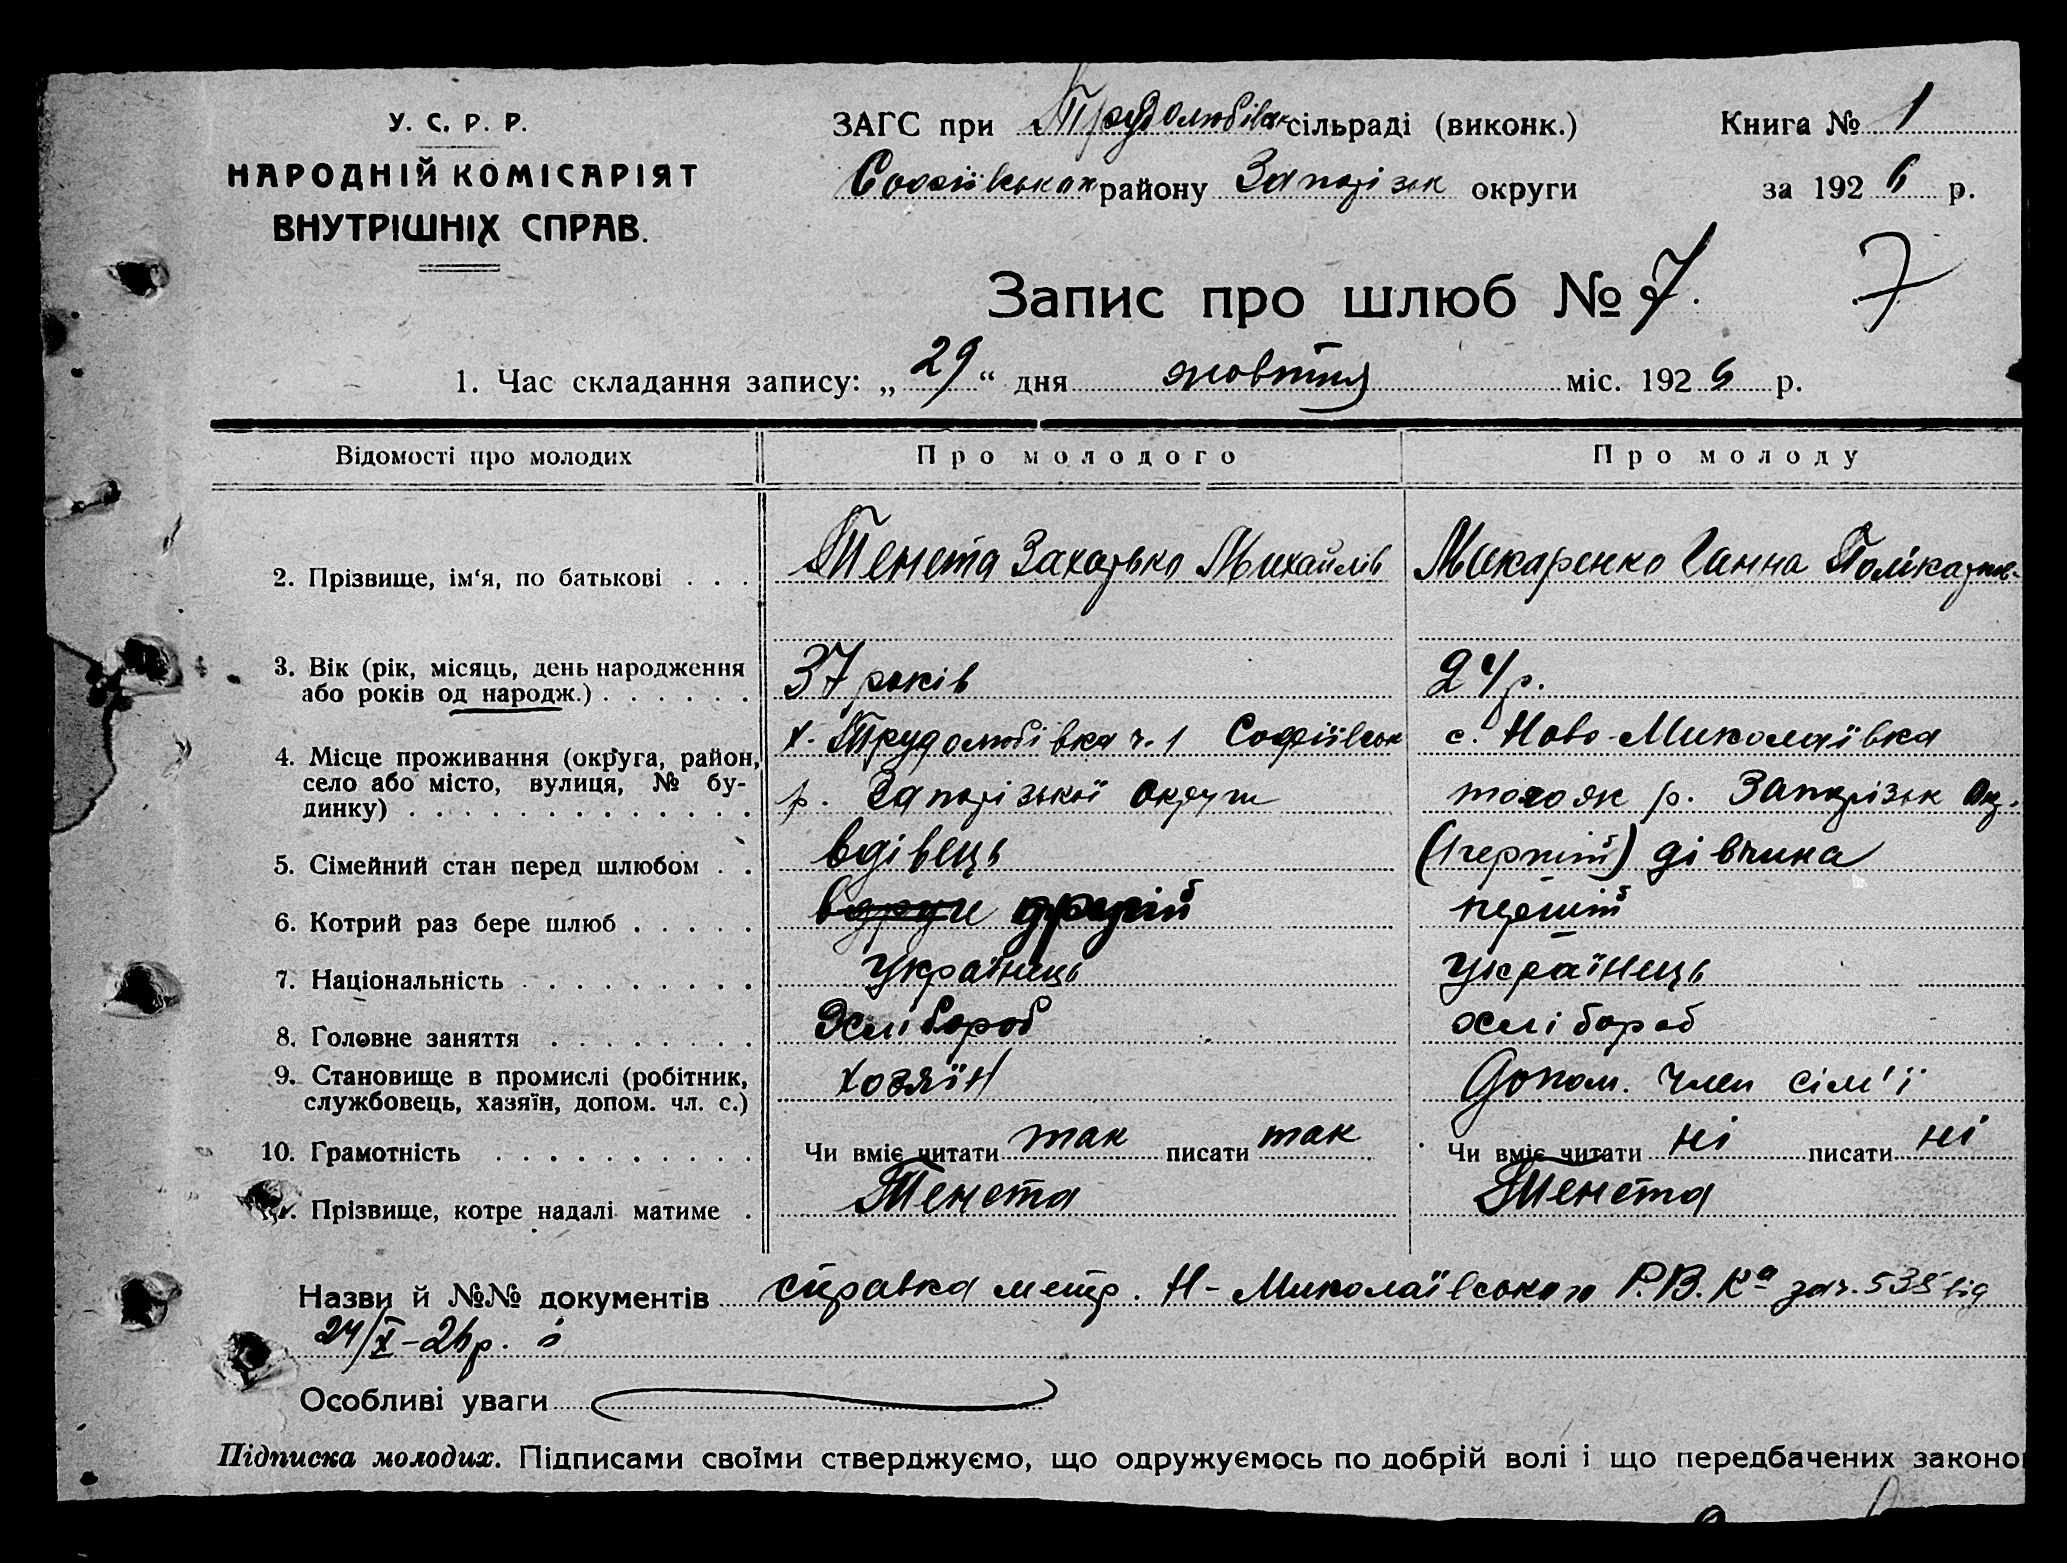 У. С. Р. Р.
НАРОДНІЙ КОМІСАРІЯТ
ВНУТРІШНІХ СПРАВ.
ЗАГС при Трудолюбівск сільраді (виконк.)
Софіївськах району Запоріжк округи
Книга № 1
за 1926 р.
Запис про шлюб № 7. 7
1. Час складання запису: „29“ дня жовтня міс. 1926 р.
Відомості про молодих Про молодого Про молоду
2. Прізвище, ім‘я, по батькові . . . Тенета Захарько Михайлів Макаренко Ганна Полікарпов-
3. Вік (рік, місяць, день народження
або років од народж.) . . . . . . 37 років 24 р.
4. Місце проживання (округа, район, х. Трудолюбівка ч. 1 Софіївськ с. Ново-Миколаївка
село або місто, вулиця, № бу- р. Запорізької округи р. Запорізьк Окр.
динку) . . . . . . . . . . . . .
5. Сімейний стан перед шлюбом . . вдівець дівчина
6. Котрий раз бере шлюб . . . . . другій перший
7. Національність . . . . . . . . . українець українець
8. Головне заняття . . . . . . . . хлібороб хлібороб
9. Становище в промислі (робітник, хозяїн Допом. член сім'ї
службовець, хазяїн, допом. чл. с.)
10. Грамотність . . . . . . . . . . Чи вміє читати так писати так Чи вміє читати ні писати ні
Прізвище, котре надалі матиме . Тенета Тенета
Назви й №№ документів справка метр. Н-Миколаївського Р.В.Ка зач. 535 від
24/X-26 р. і
Особливі уваги
Підписка молодих. Підписами своїми стверджуємо, що одружуємось по добрій волі і що передбачених законо